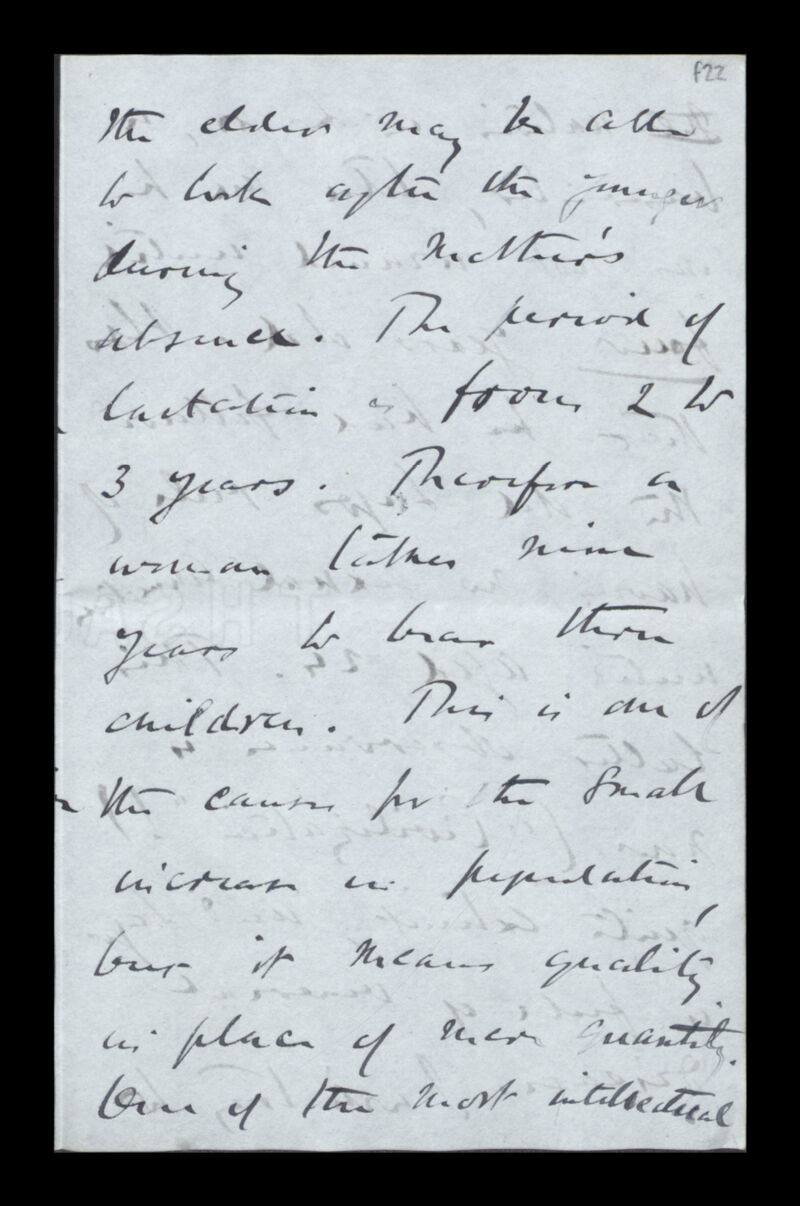 f22
the elder may be able
to look after the younger
during the Mother's
absence. The period of
lactation is from 2 to
3 years. Therefore a
woman takes nine
years to bear three
children. This is one of
the causes for the small
increase in population,
but it means quality
in place of mere quantity.
One of the most intellectual